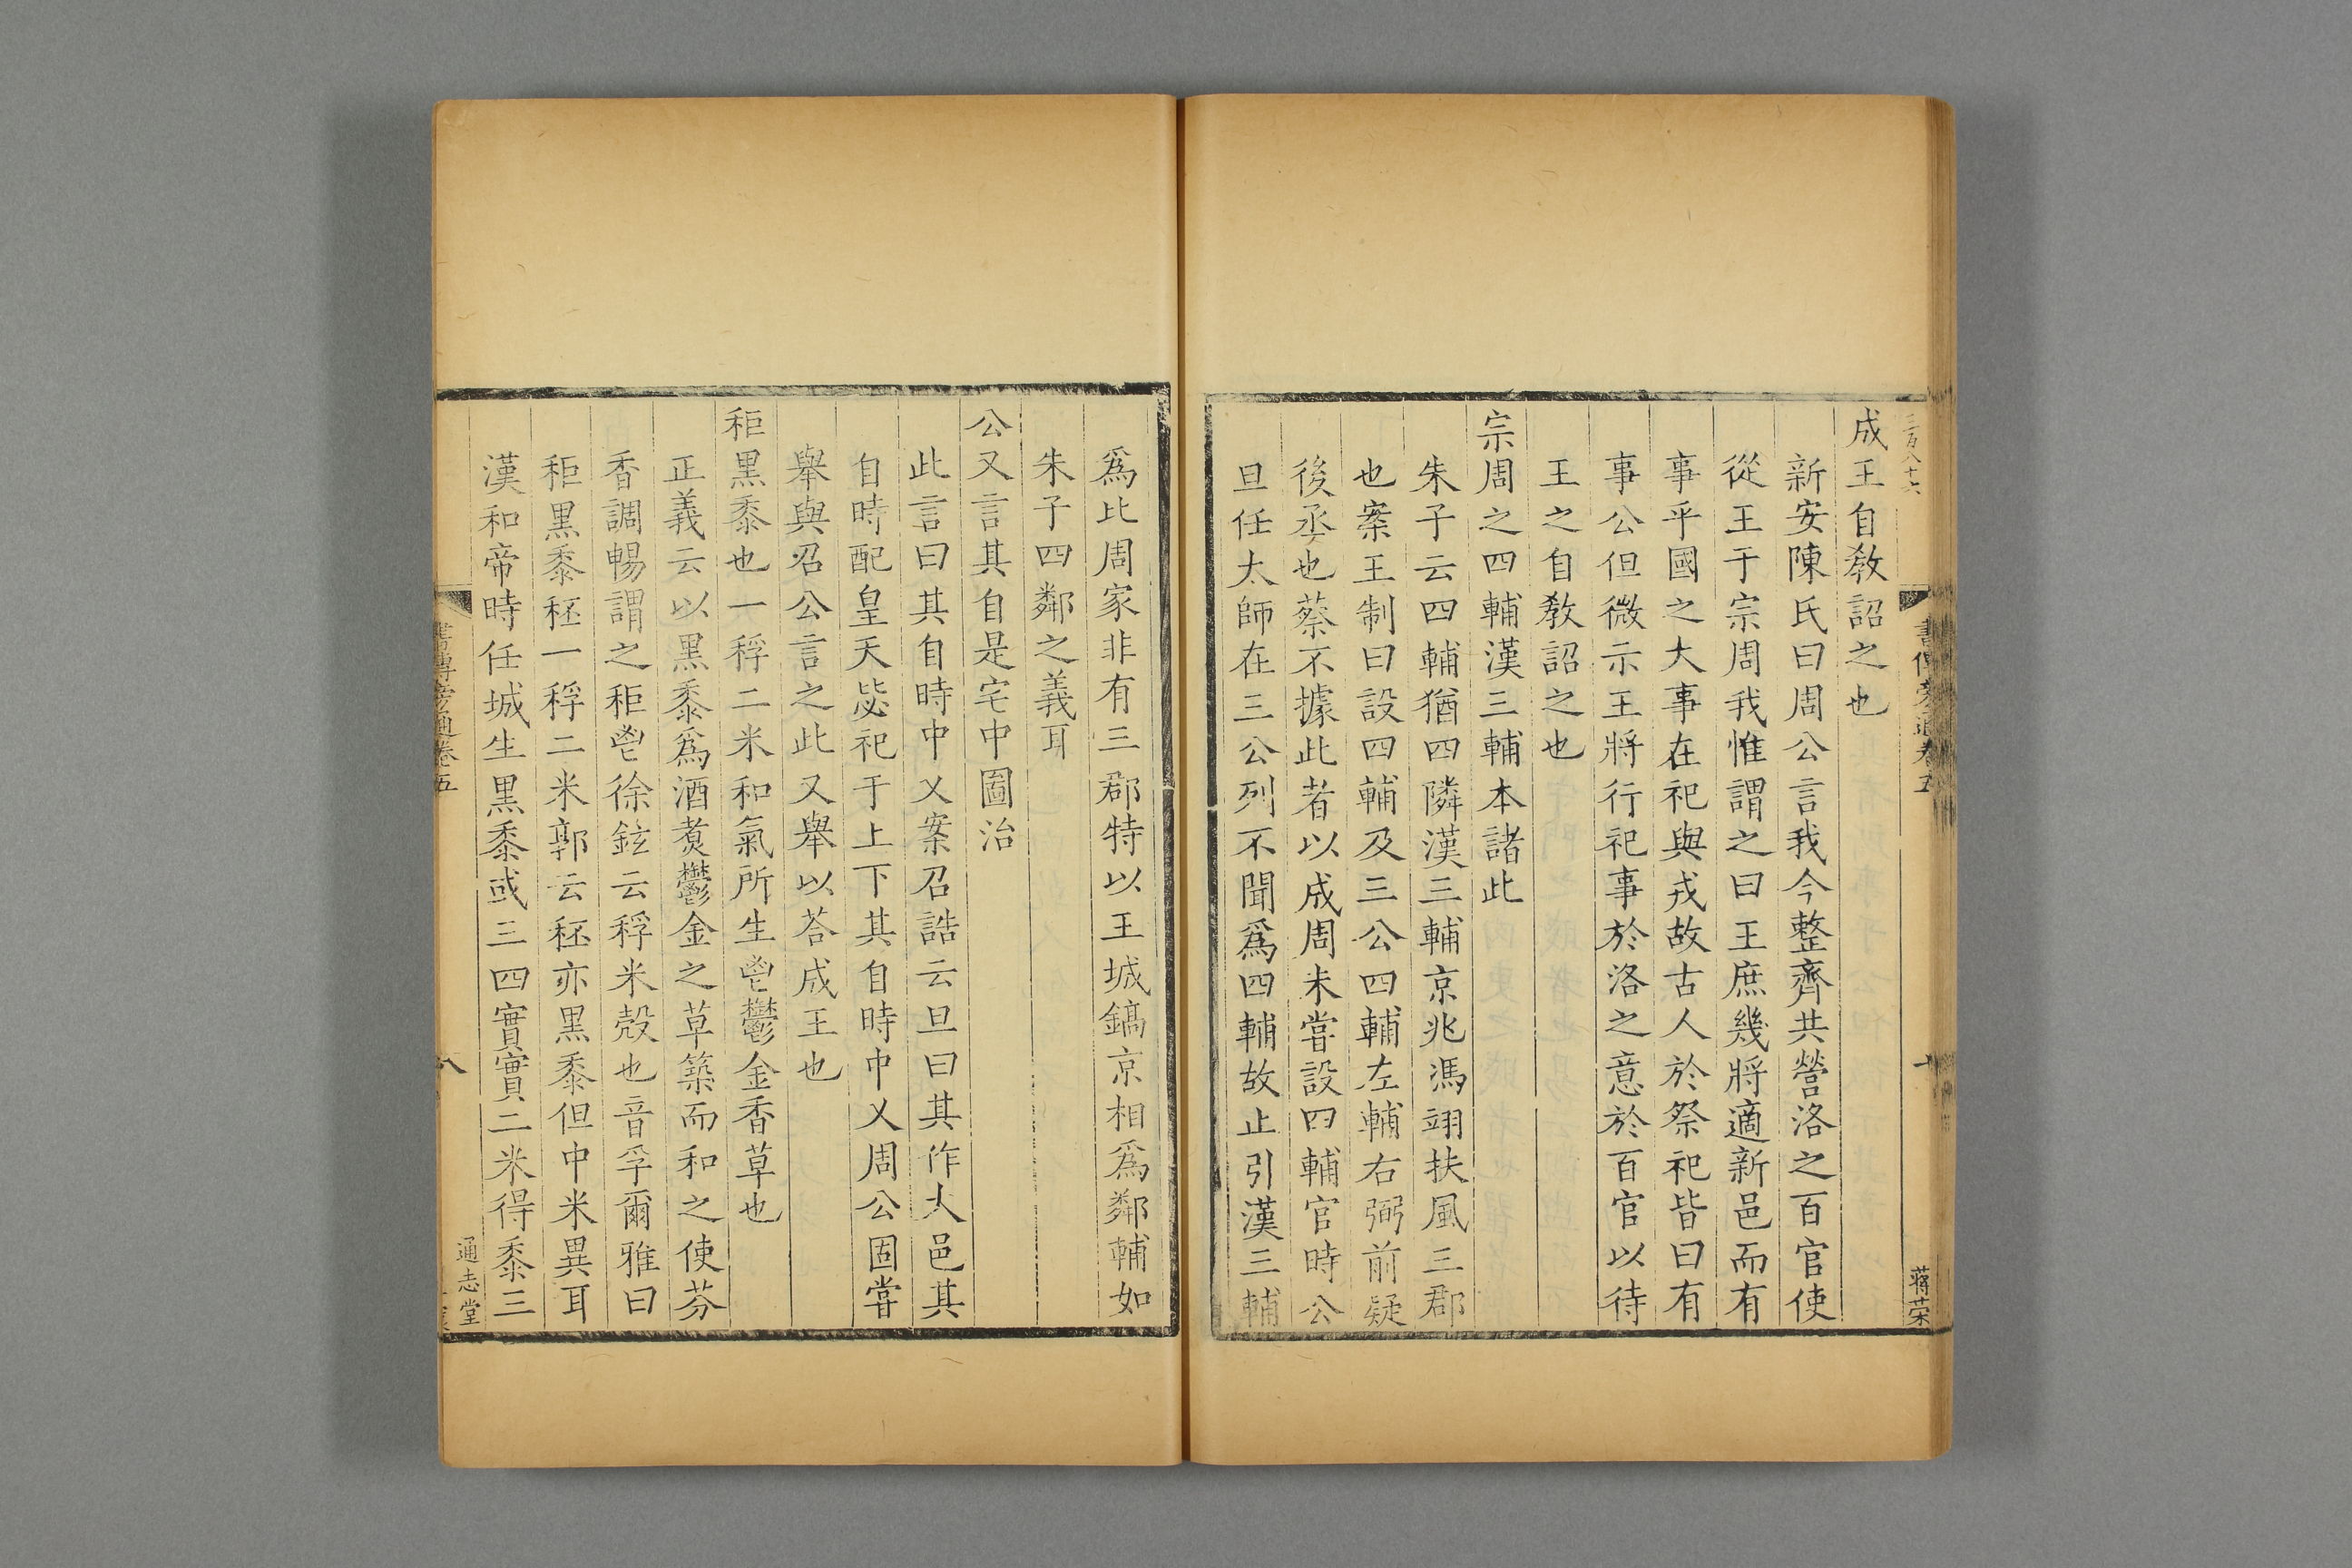 三百八十六
成王自敎詔之也
新安陳氏曰周公言我今整齊共營洛之百官使
從王于宗周我惟謂之曰王庶幾將適新邑而有
事乎國之大事在祀與戎故古人於祭祀皆曰有
事公但微示王將行祀事於洛之意於百官以待
王之自敎詔之也
宗周之四輔漢三輔本諸此
朱子云四輔猶四隣漢三輔京兆馮翊扶風三郡
也案王制曰設四輔及三公四輔左輔右弼前疑
後丞也蔡不據此者以成周未嘗設四輔官時公
旦任太師在三公列不聞爲四輔故止引漢三輔
蔣荣
爲比周家非有三郡特以王城鎬京相爲鄰輔如
朱子四鄰之義耳
公又言其自是宅中圖治
此言曰其自時中乂案召誥云旦曰其作大邑其
自時配皇天毖祀于上下其自時中乂周公固嘗
舉與召公言之此又舉以荅成王也
秬黑黍也一稃二米和氣所生鬯鬱金香草也
正義云以黑黍爲酒煑鬱金之草築而和之使芬
香調暢謂之秬鬯徐鉉云稃米殼也音孚爾雅曰
秬黑黍秠一稃二米郭云秠亦黑黍但中米異耳
漢和帝時任城生黑黍或三四實實二米得黍三
書傳旁通卷五
八
通志堂